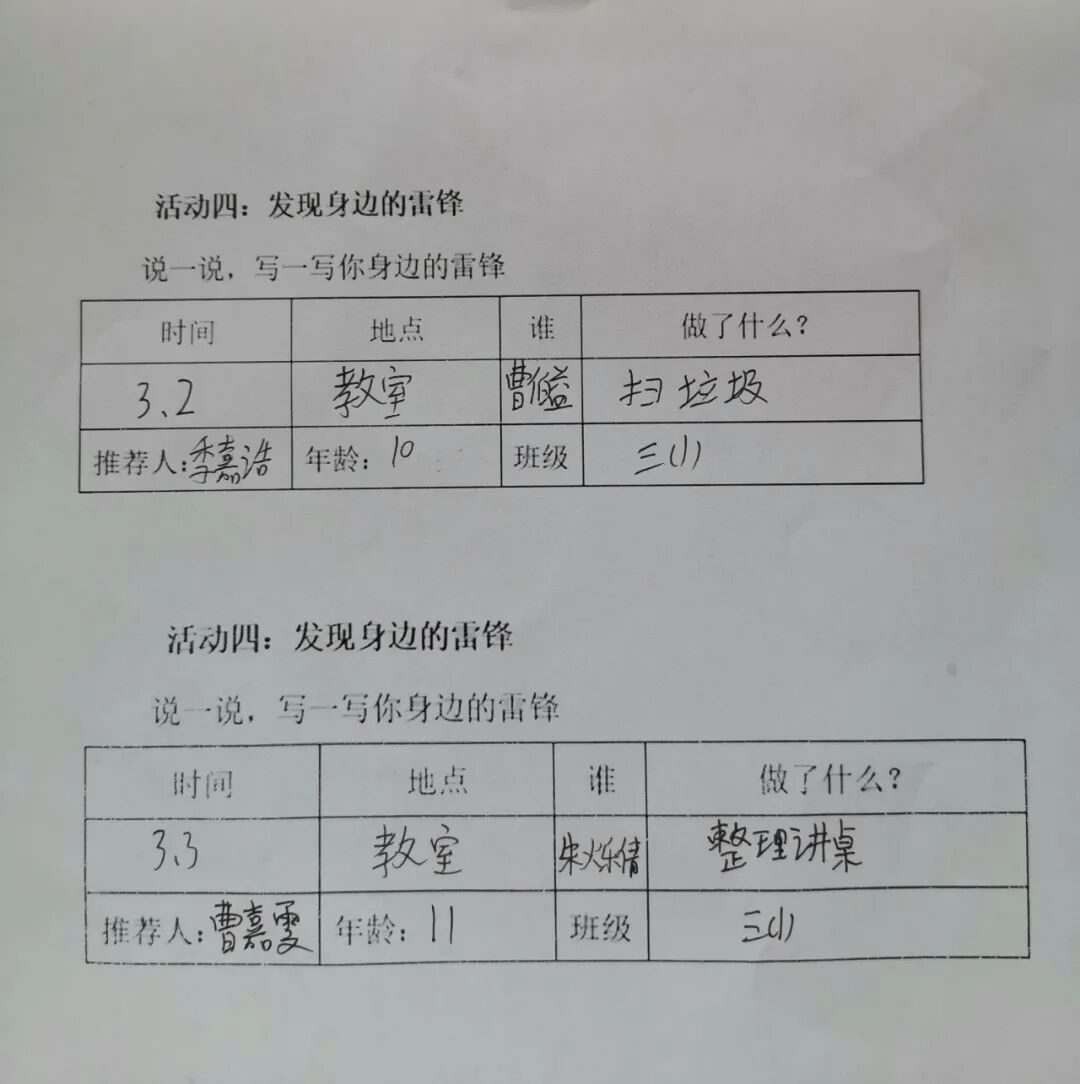 活动四：发现身边的雷锋
说一说，写一写你身边的雷锋
时间 地点 谁 做了什么？
3、2 教室 曹 扫垃圾
推荐人：李嘉浩 年龄：10 班级 三(1)
活动四：发现身边的雷锋
说一说，写一写你身边的雷锋
时间 地点 谁 做了什么？
3、3 教室 朱烁倩 整理讲桌
推荐人：曹嘉雯 年龄：11 班级 三(1)